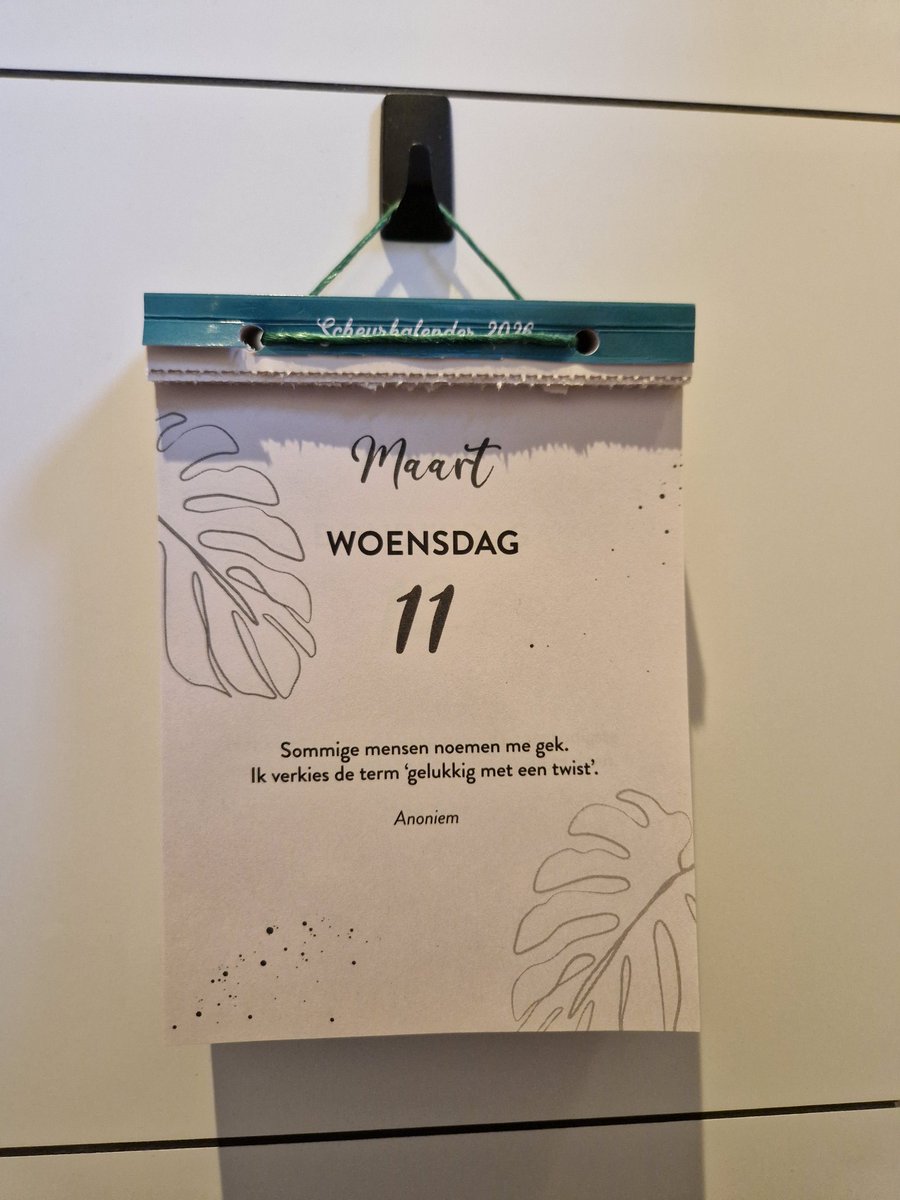 Scheurkalender 2026
Maart
WOENSDAG
11
Sommige mensen noemen me gek.
Ik verkies de term ‘gelukkig met een twist’.
Anoniem